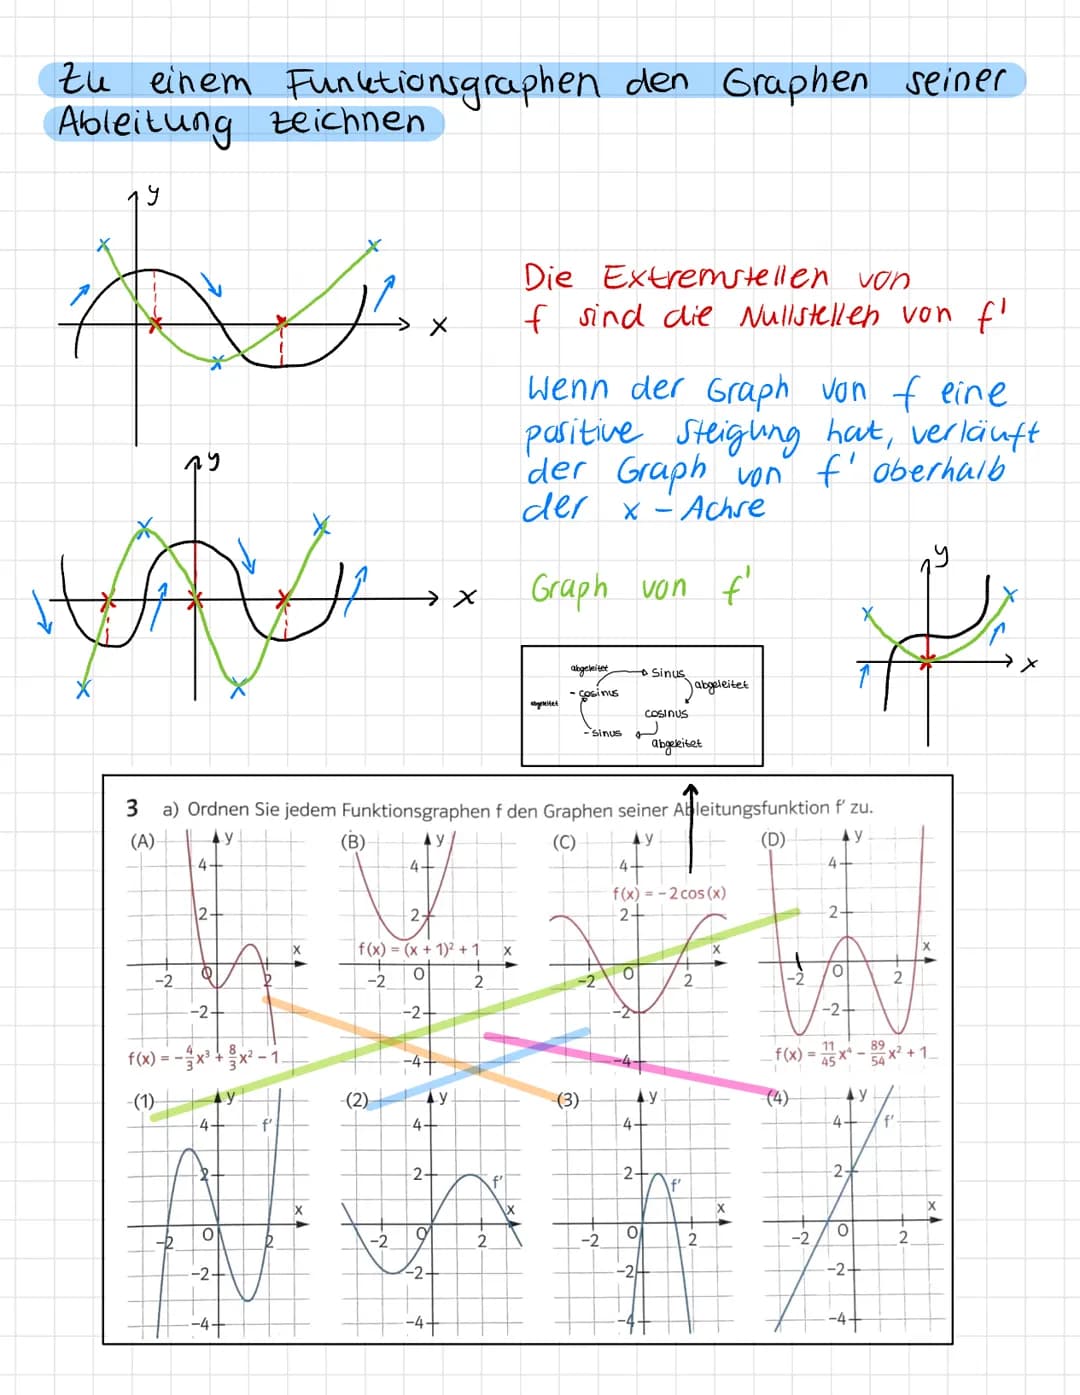 Zu einem Funktionsgraphen den Graphen seiner
Ableitung zeichnen
y
x
Die Extremstellen von
f sind die Nullstellen von f'
Wenn der Graph von f eine
positive Steigung hat, verläuft
der Graph von f' oberhalb
der x - Achse
y
x
Graph von f'
y
x
abgeleitet
Sinus
abgeleitet
- cosinus
abgeleitet
cosinus
- sinus
abgeleitet
3 a) Ordnen Sie jedem Funktionsgraphen f den Graphen seiner Ableitungsfunktion f' zu.
(A) y (B) y (C) y (D) y
4 4 4 4
f(x) = -2 cos (x)
2 2 2 2
f(x) = (x + 1)² + 1
x x x x
-2 0 2 -2 0 2 -2 0 2 -2 0 2
-2 -2 -2 -2
f(x) = -4/3x³ + 8/3x² - 1 -4 -4 f(x) = 11/45x⁴ - 89/54x² + 1
(1) y (2) y (3) y (4) y
4 f' 4 4 4 f'
2 2 f' 2 f' 2
x x x x
-2 0 2 -2 0 2 -2 0 2 -2 0 2
-2 -2 -2 -2
-4 -4 -4 -4